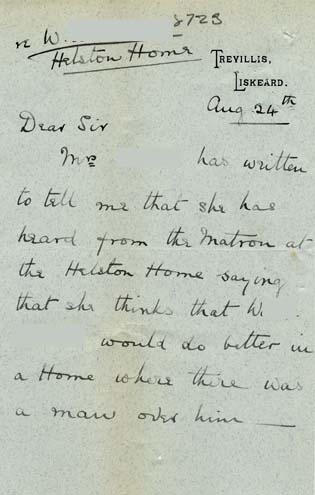 re W. 8723
Helston Home
TREVILLIS,
LISKEARD.
Aug 24th
Dear Sir
Mrs has written
to tell me that she has
heard from the Matron at
the Helston Home saying
that she thinks that W
would do better in
a Home where there was
a man over him —